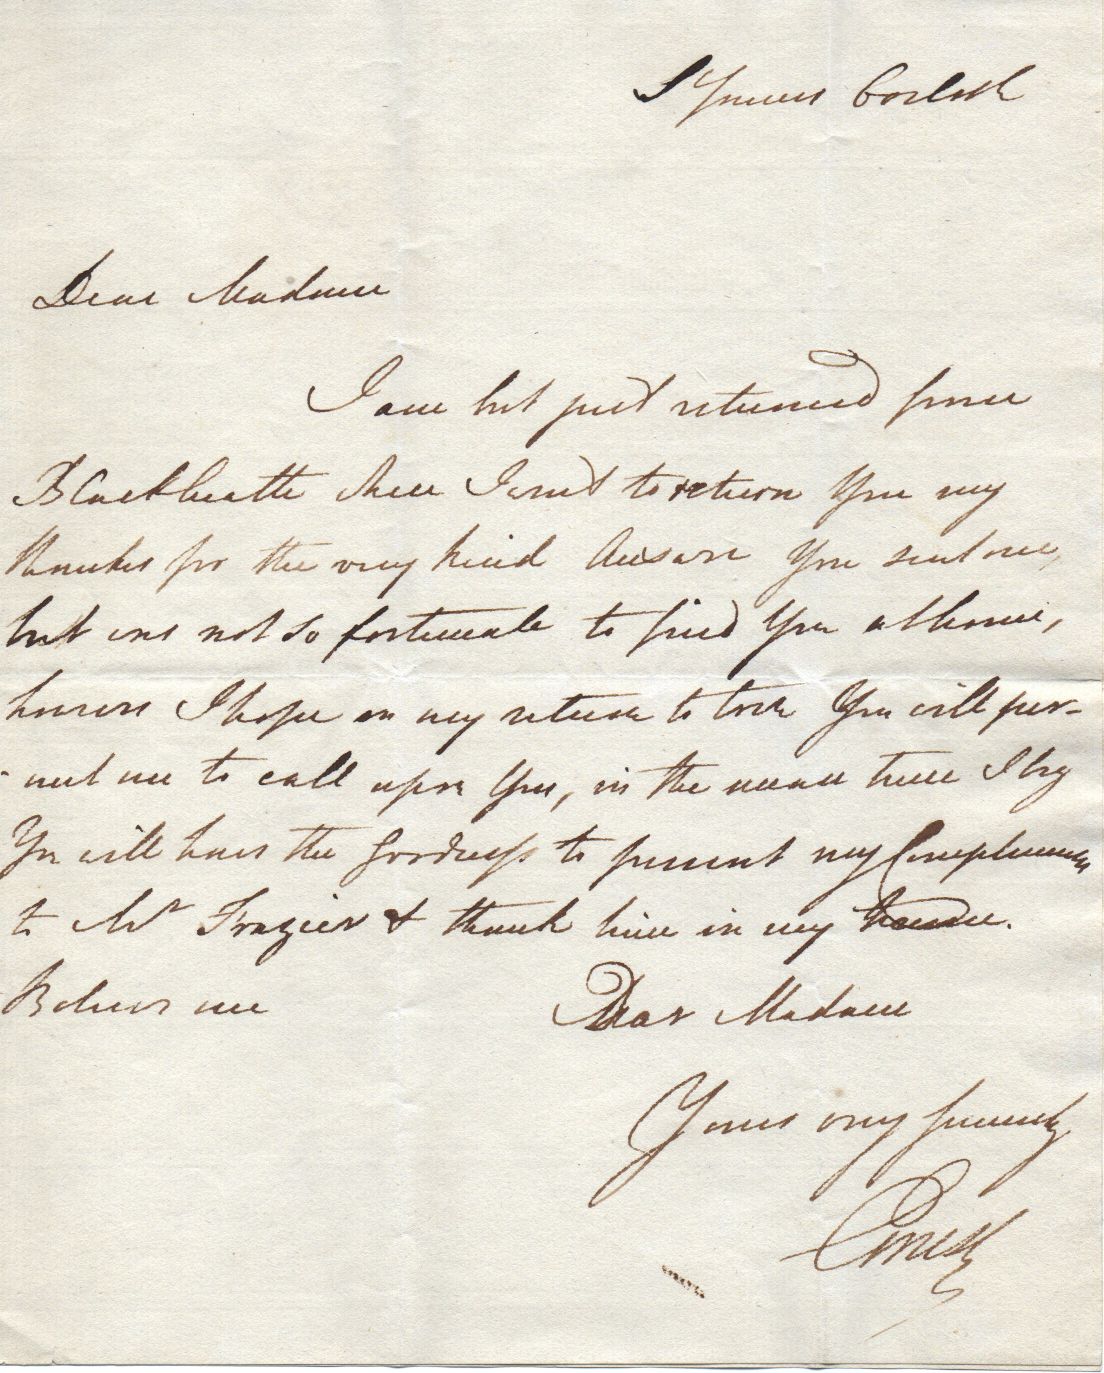 St James's 
Dear Madame
I am but just returned from
Blackheath where I went to return You my
thanks for the very kind Answer You sent me,
but was not so fortunate to find You at home,
however I hope on my return to town You will per-
-mit me to call upon You, in the mean time I beg
You will have the Goodness to present my Compliments
to Mr Frazier & thank him in my name.
Believe me Dear Madame
Yours very sincerely
Ernest